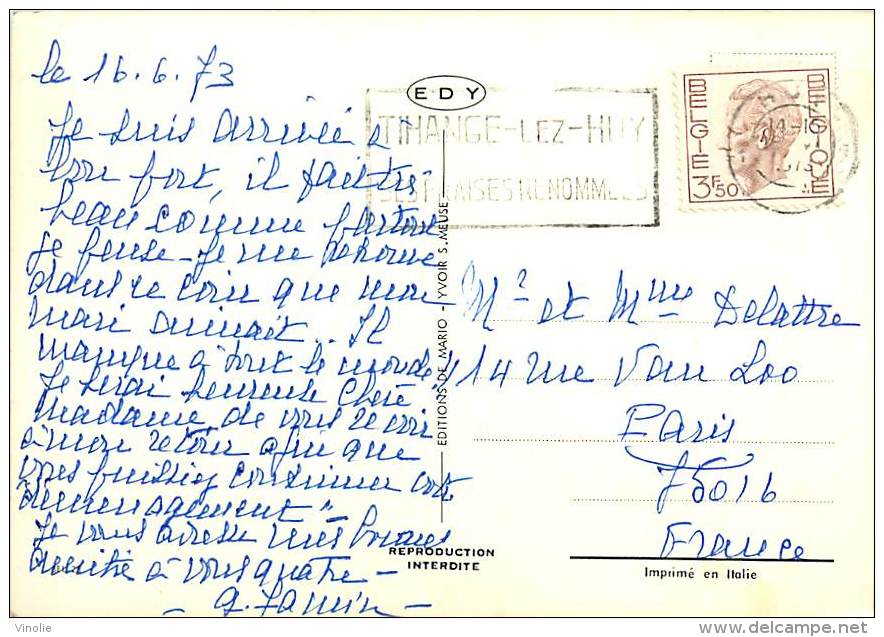 le 16.6.73
Je suis arrivée à
bon port, il fait très
beau comme partout
je pense - Je me retrouve
dans ce coin que mon
mari aimait.. Il
manque à tout le monde
Je serai heureuse Chère
Madame, de vous revoir
à mon retour afin que
vous puissiez continuer votre
aménagement"
Je vous adresse mes bonnes
amitiés à vous quatre -
EDY
TIHANGE-LEZ-HUY
SES FRAISES RENOMMEES
BELGIE
BELGIQUE
3F50
EDITIONS DE MARIO - YVOIR S. MEUSE
Mr et Mme Delattre
14 rue Van Loo
Paris
75016
France
REPRODUCTION
INTERDITE
Imprimé en Italie
Vinolie
www.delcampe.net